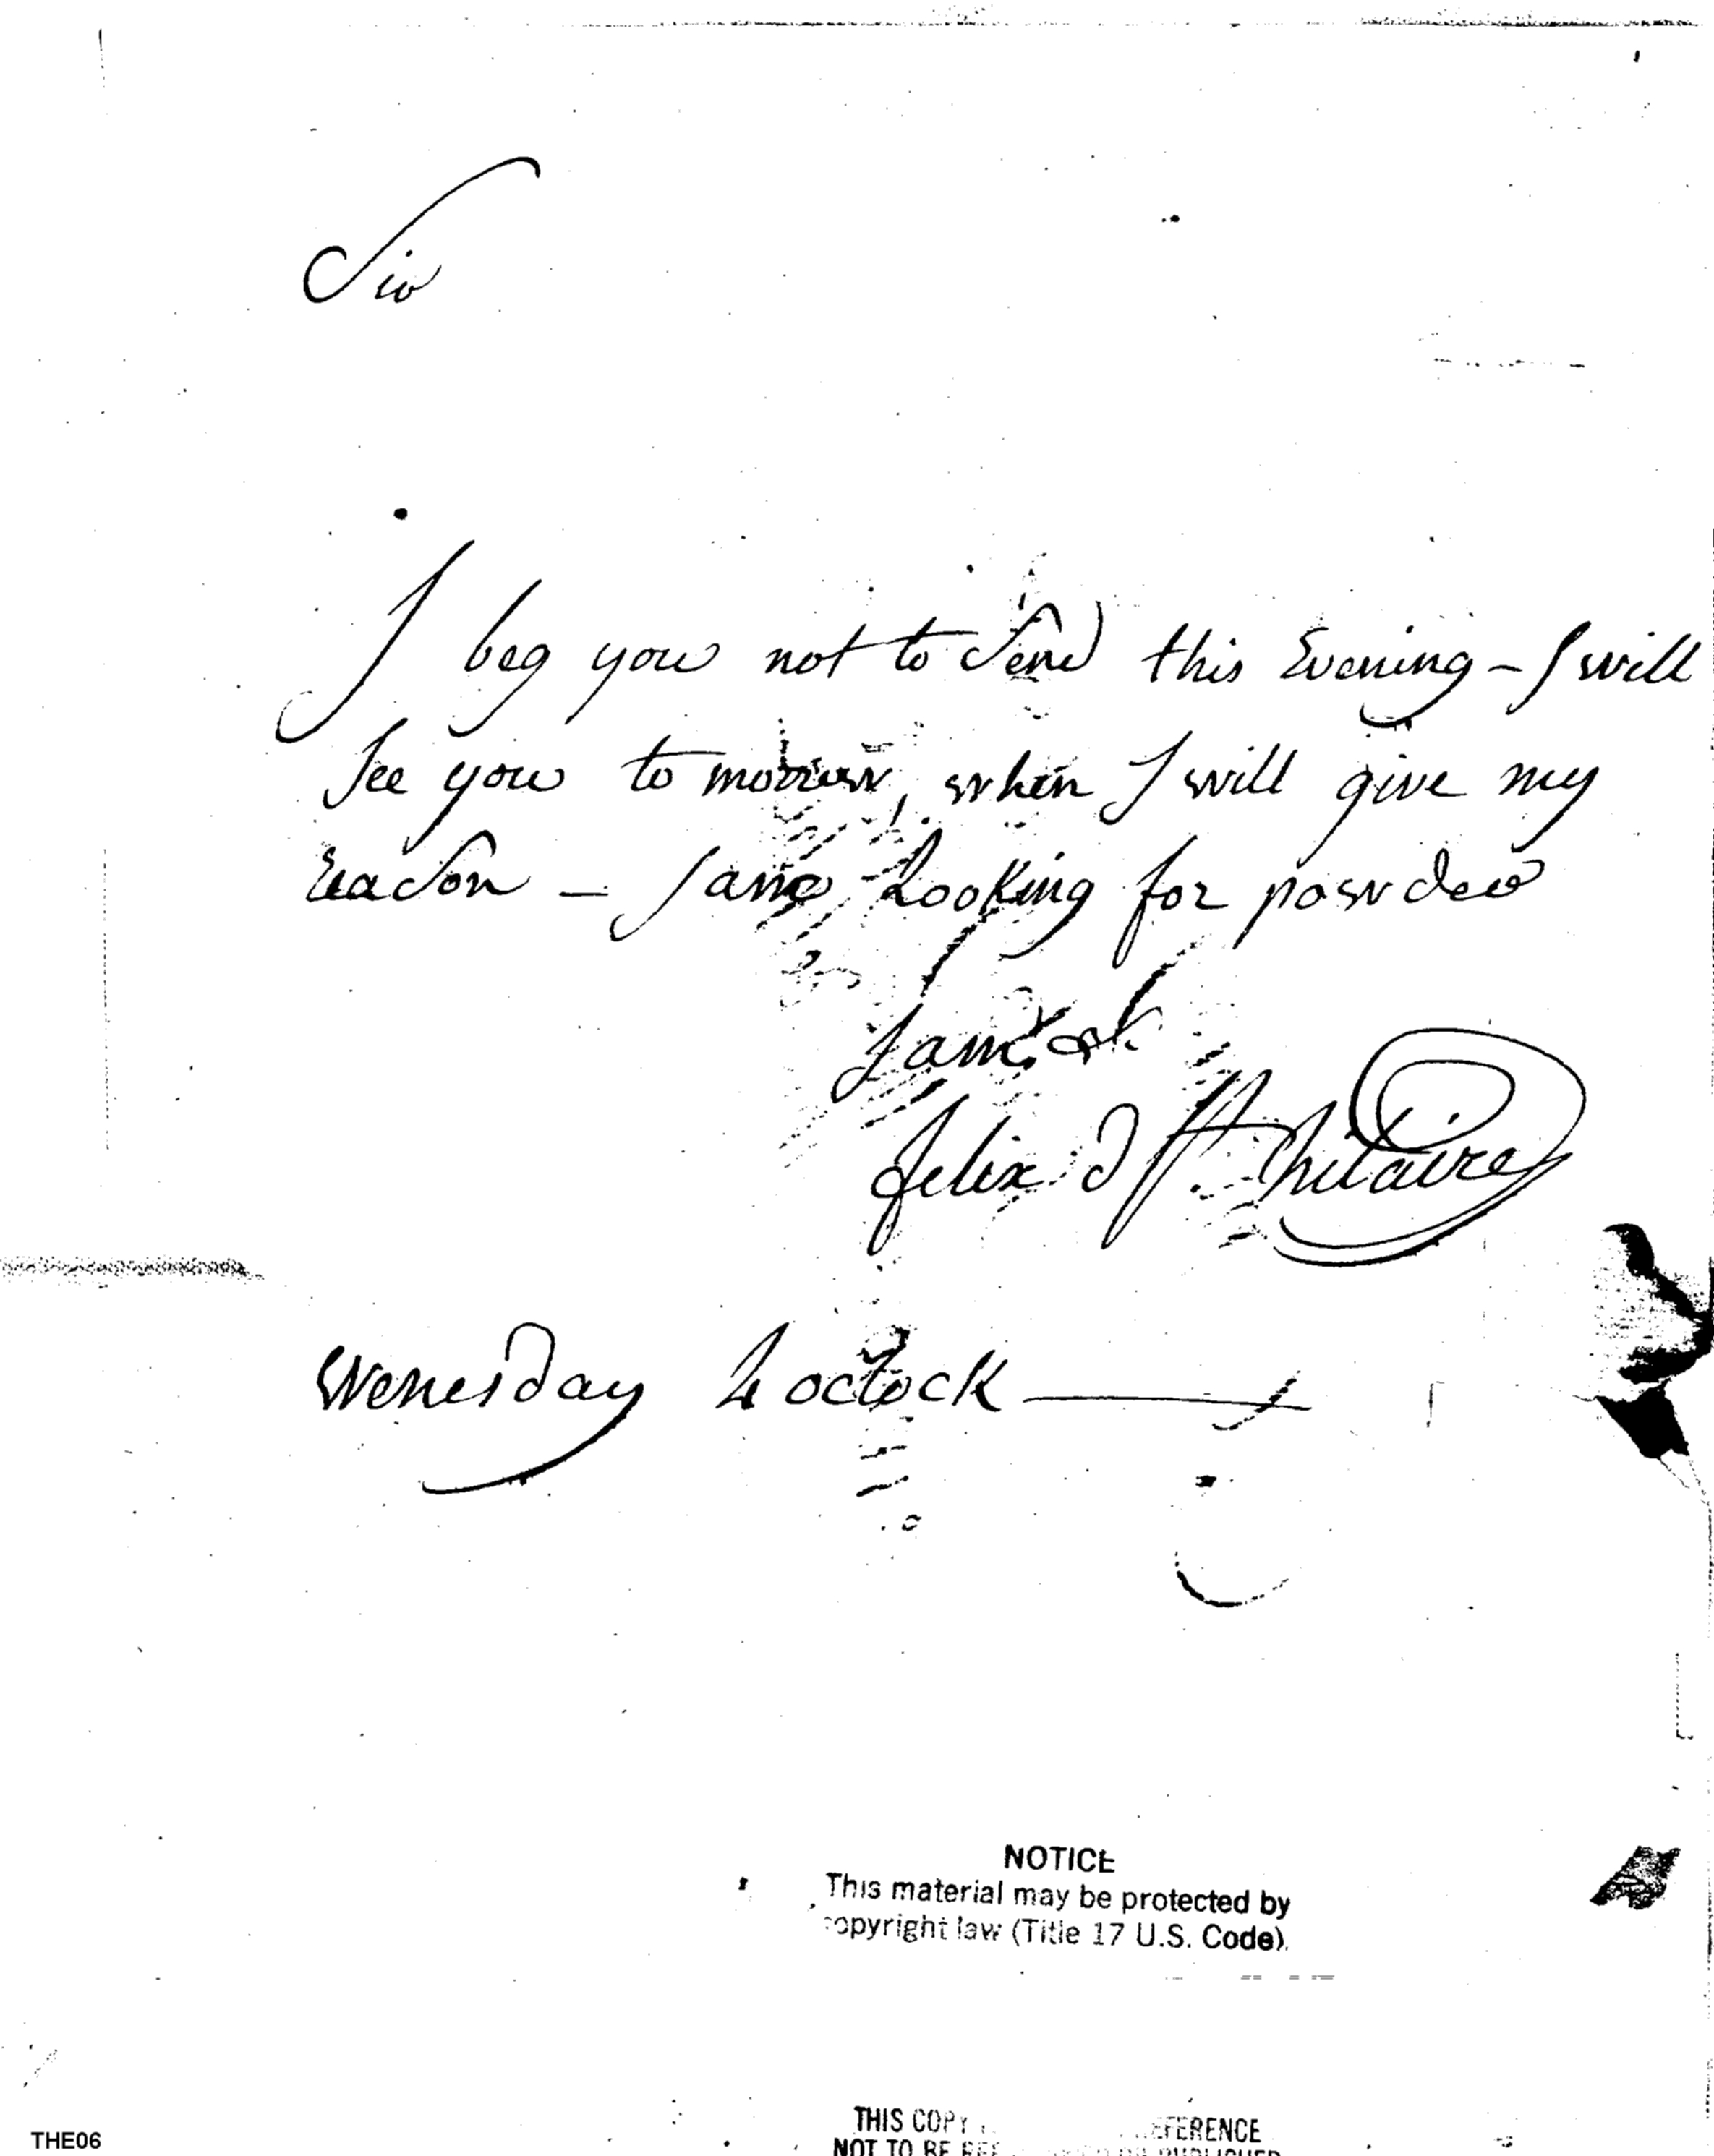 Sir
I beg you not to Send this Evening - I will
See you to morrow, when I will give my
reason - I am Looking for powder
I am
felix D St. hilaire
Wenesday 4 oclock
NOTICE
This material may be protected by
copyright law (Title 17 U.S. Code).
THIS COPY
NOT TO BE
THE06